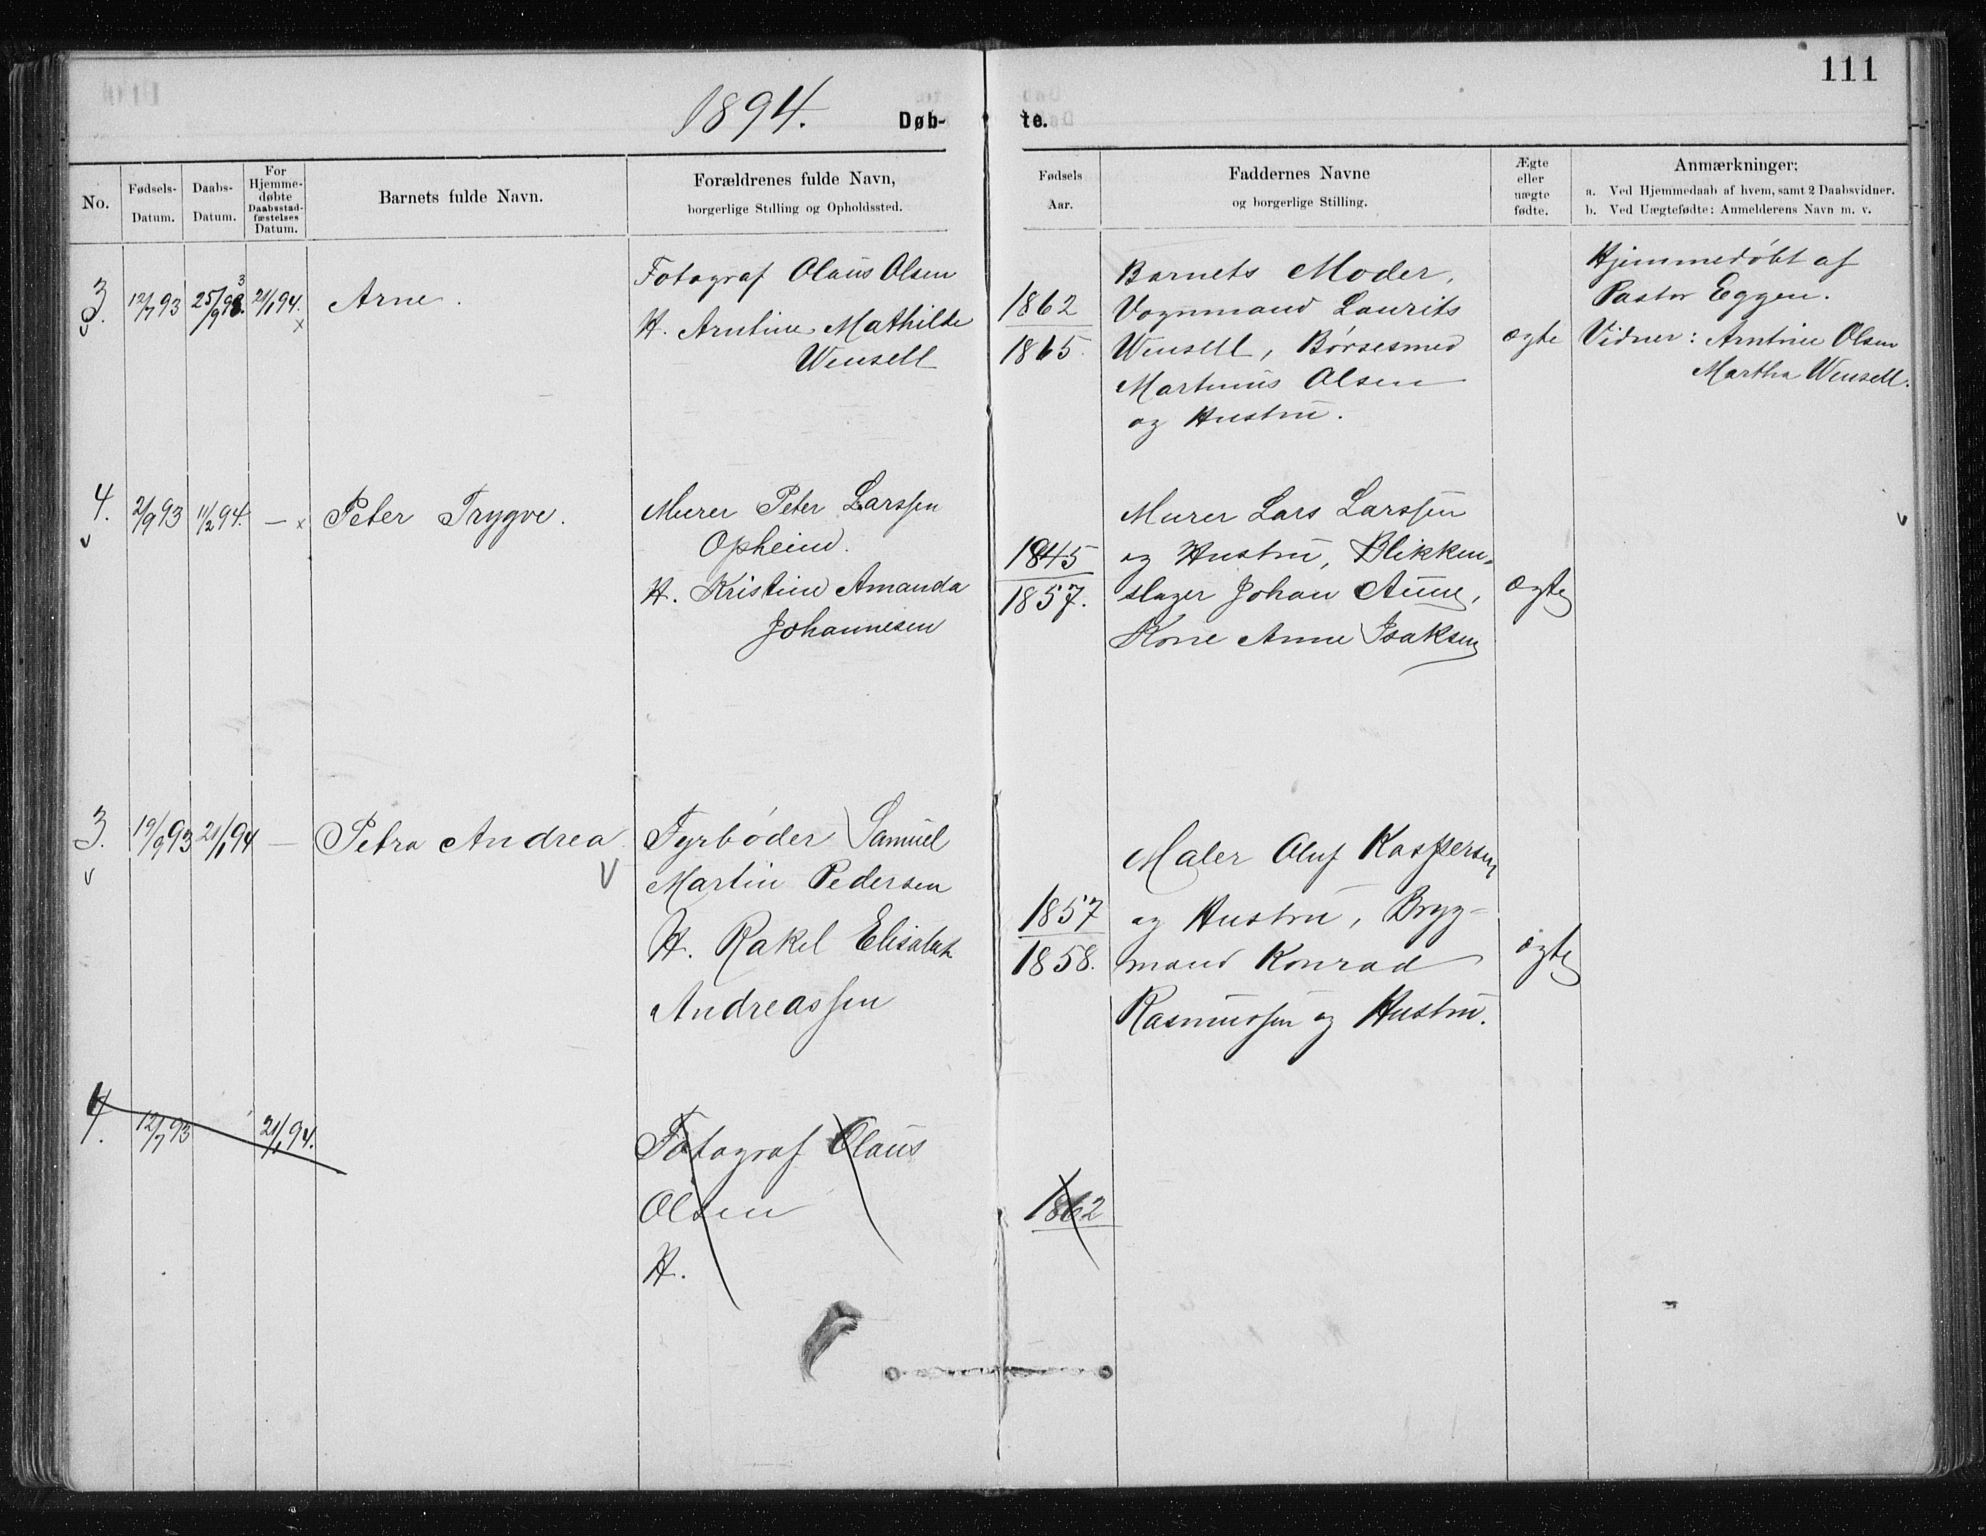 111
1894.
Døb- te.
No.
Fødsels-
Datum.
Daabs-
Datum.
For
Hjemme-
døbte
Daabsstad-
fæstelses
Datum.
Barnets fulde Navn.
Forældrenes fulde Navn,
borgerlige Stilling og Opholdssted.
Fødsels
Aar.
Faddernes Navne
og borgerlige Stilling.
Ægte
eller
uægte
fødte.
Anmærkninger:
a. Ved Hjemmedaab af hvem, samt 2 Daabsvidner.
b. Ved Uægtefødte: Anmelderens Navn m. v.
3.
12/7 93
25/9 93.
21/1 94.
Arne.
Fotograf Olaus Olsen
H. Arntine Mathilde
Wensell
1862
1865.
Barnets Moder,
Vognmand Laurits
Wensell, Børsesmed
Martinus Olsen
og Hustru.
ægte
Hjemmedøbt af
Pastor Eggen.
Vidner: Arntine Olsen
Martha Wensell.
4.
2/9 93
11/2 94.
—
Peter Trygve.
Murer Peter Larssen
Opheim.
H. Kristine Amanda
Johannesen
1845
1857.
Murer Lars Larssen
og Hustru, Blikken-
slager Johan Aune,
Kone Anne Isaksen
ægte
3.
19/9 93
21/1 94
—
Petra Andrea
Fyrbøder Samuel
Martin Pedersen
H. Rakel Elisabet
Andreassen
1857
1858.
Maler Oluf Kaspersen
og Hustru, Bryg-
mand Konrad
Rasmussen og Hustru.
ægte
4.
12/7 93
21/1 94.
Fotograf Olaus
Olsen
H.
1862